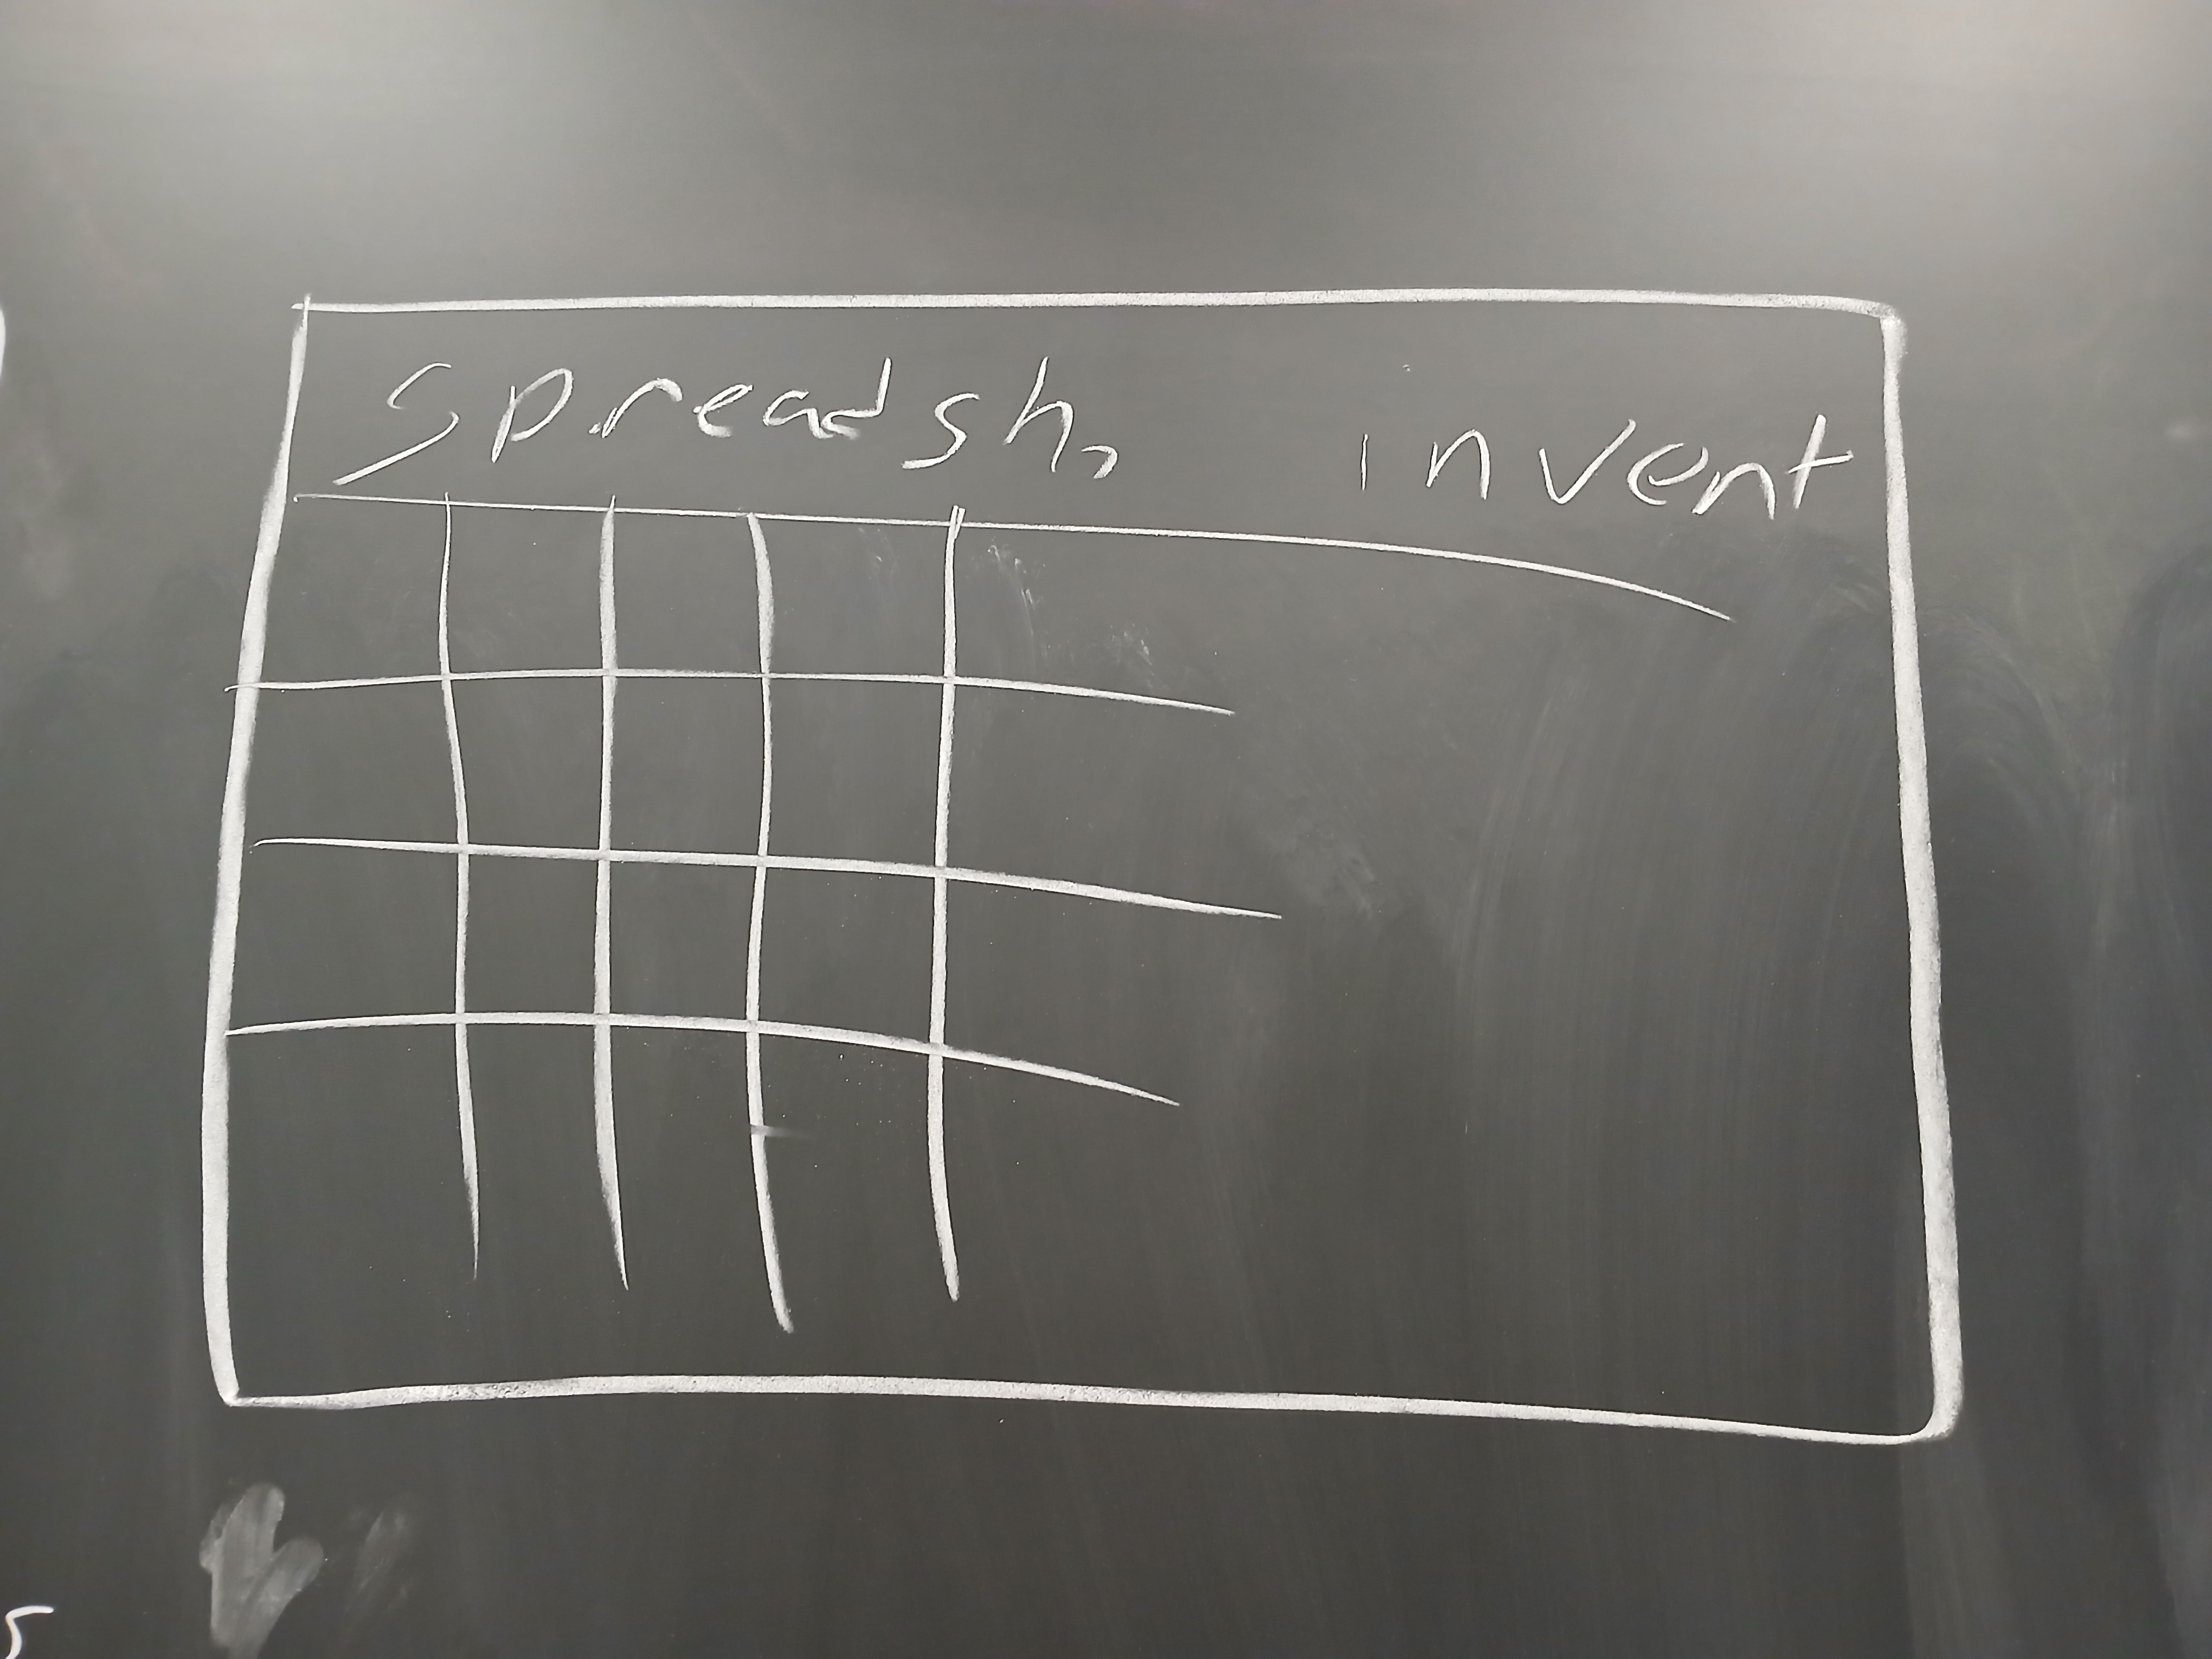 Spreadsh, invent
5